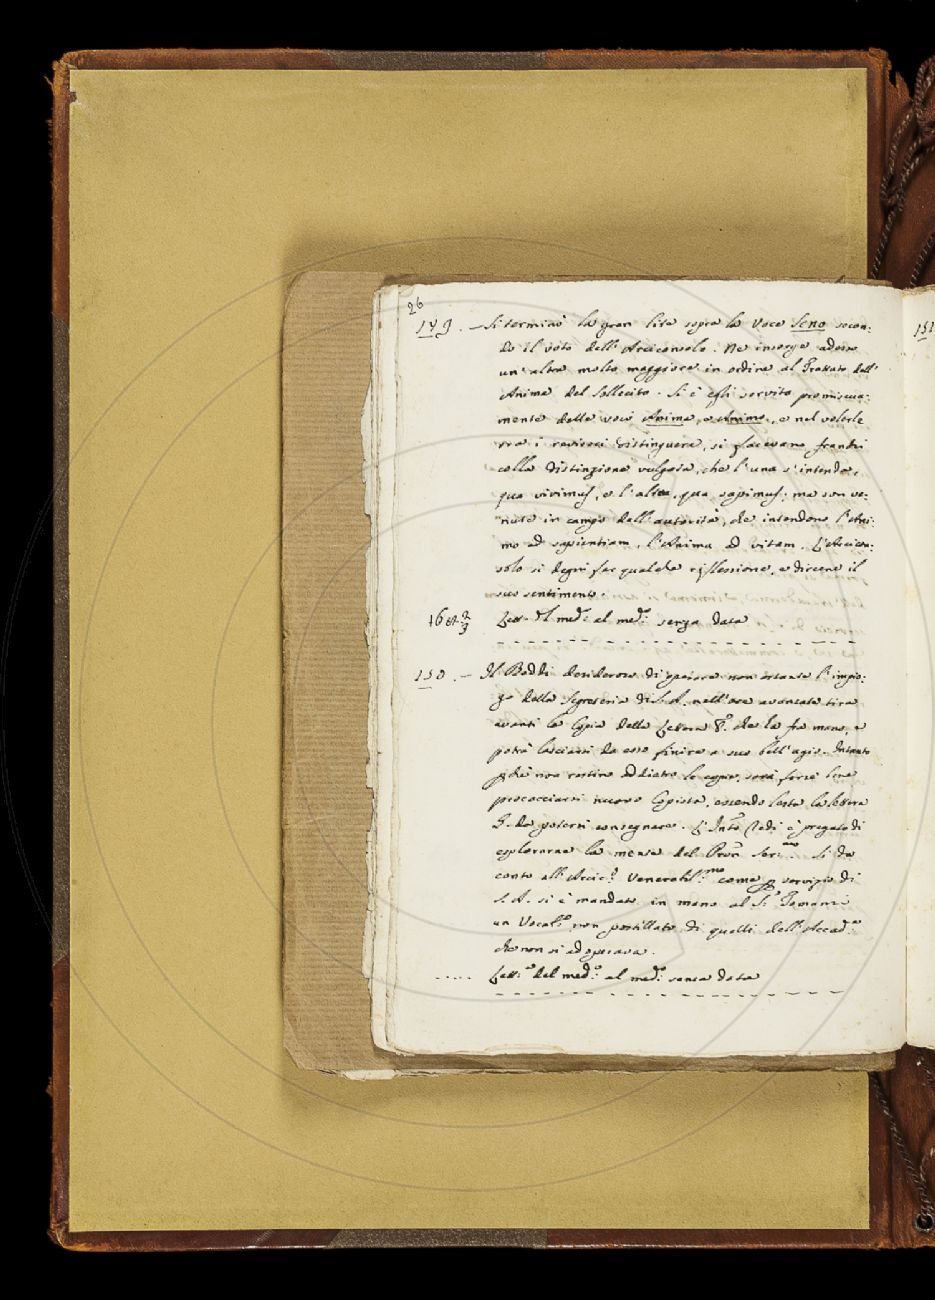 26
149. - Si terminò la gran lite sopra la Voce Seno secon:
do il voto dell'Arciconsolo. Ne insorge adesso
un'altra molto maggiore in ordine al Trattato dell'
Anima del Sollecito. Si è egli servito promiscua:
mente delle voci Anima, e Animo, e nel volerle
ora i revisori distinguere, si facevano franchi
colla distinzione vulgata, che l'una s'intenda,
qua vivimus, e l'altra, qua sapimus; ma son ve:
nute in campo dell'autorità, che intendono l'Ani:
mo ad sapientiam, l'Anima ad vitam. L'Arcicon:
solo si degni far qualche riflessione, e dircene il
suo sentimento.
Lett. del med.º al med.º senza data
150. - Il Baldi desideroso di operare non ostante l'impie:
go della Segreteria di S.A. nell'ore avanzate tira
avanti la Copia della Lettera P. che la fra mano, e
potrà lasciarsi da esso finire a suo bell'agio. Intanto
perché non restino addietro le opre, sarà forse bene
procacciarsi nuovo Copista, essendo lesta la lettera
da potersi consegnare. L' Redi è pregato di
esplorarne la mente del Pron. Ser.mo. Si dà
conto all'Arcic.º Venerabil.mo come per servizio di
S.A. si è mandato in mano al Si.r
un Vocab.º non postillato di quelli dell'Accad.a
che non si adoperava.
..... Lett.a del med.º al med.º senza data
151